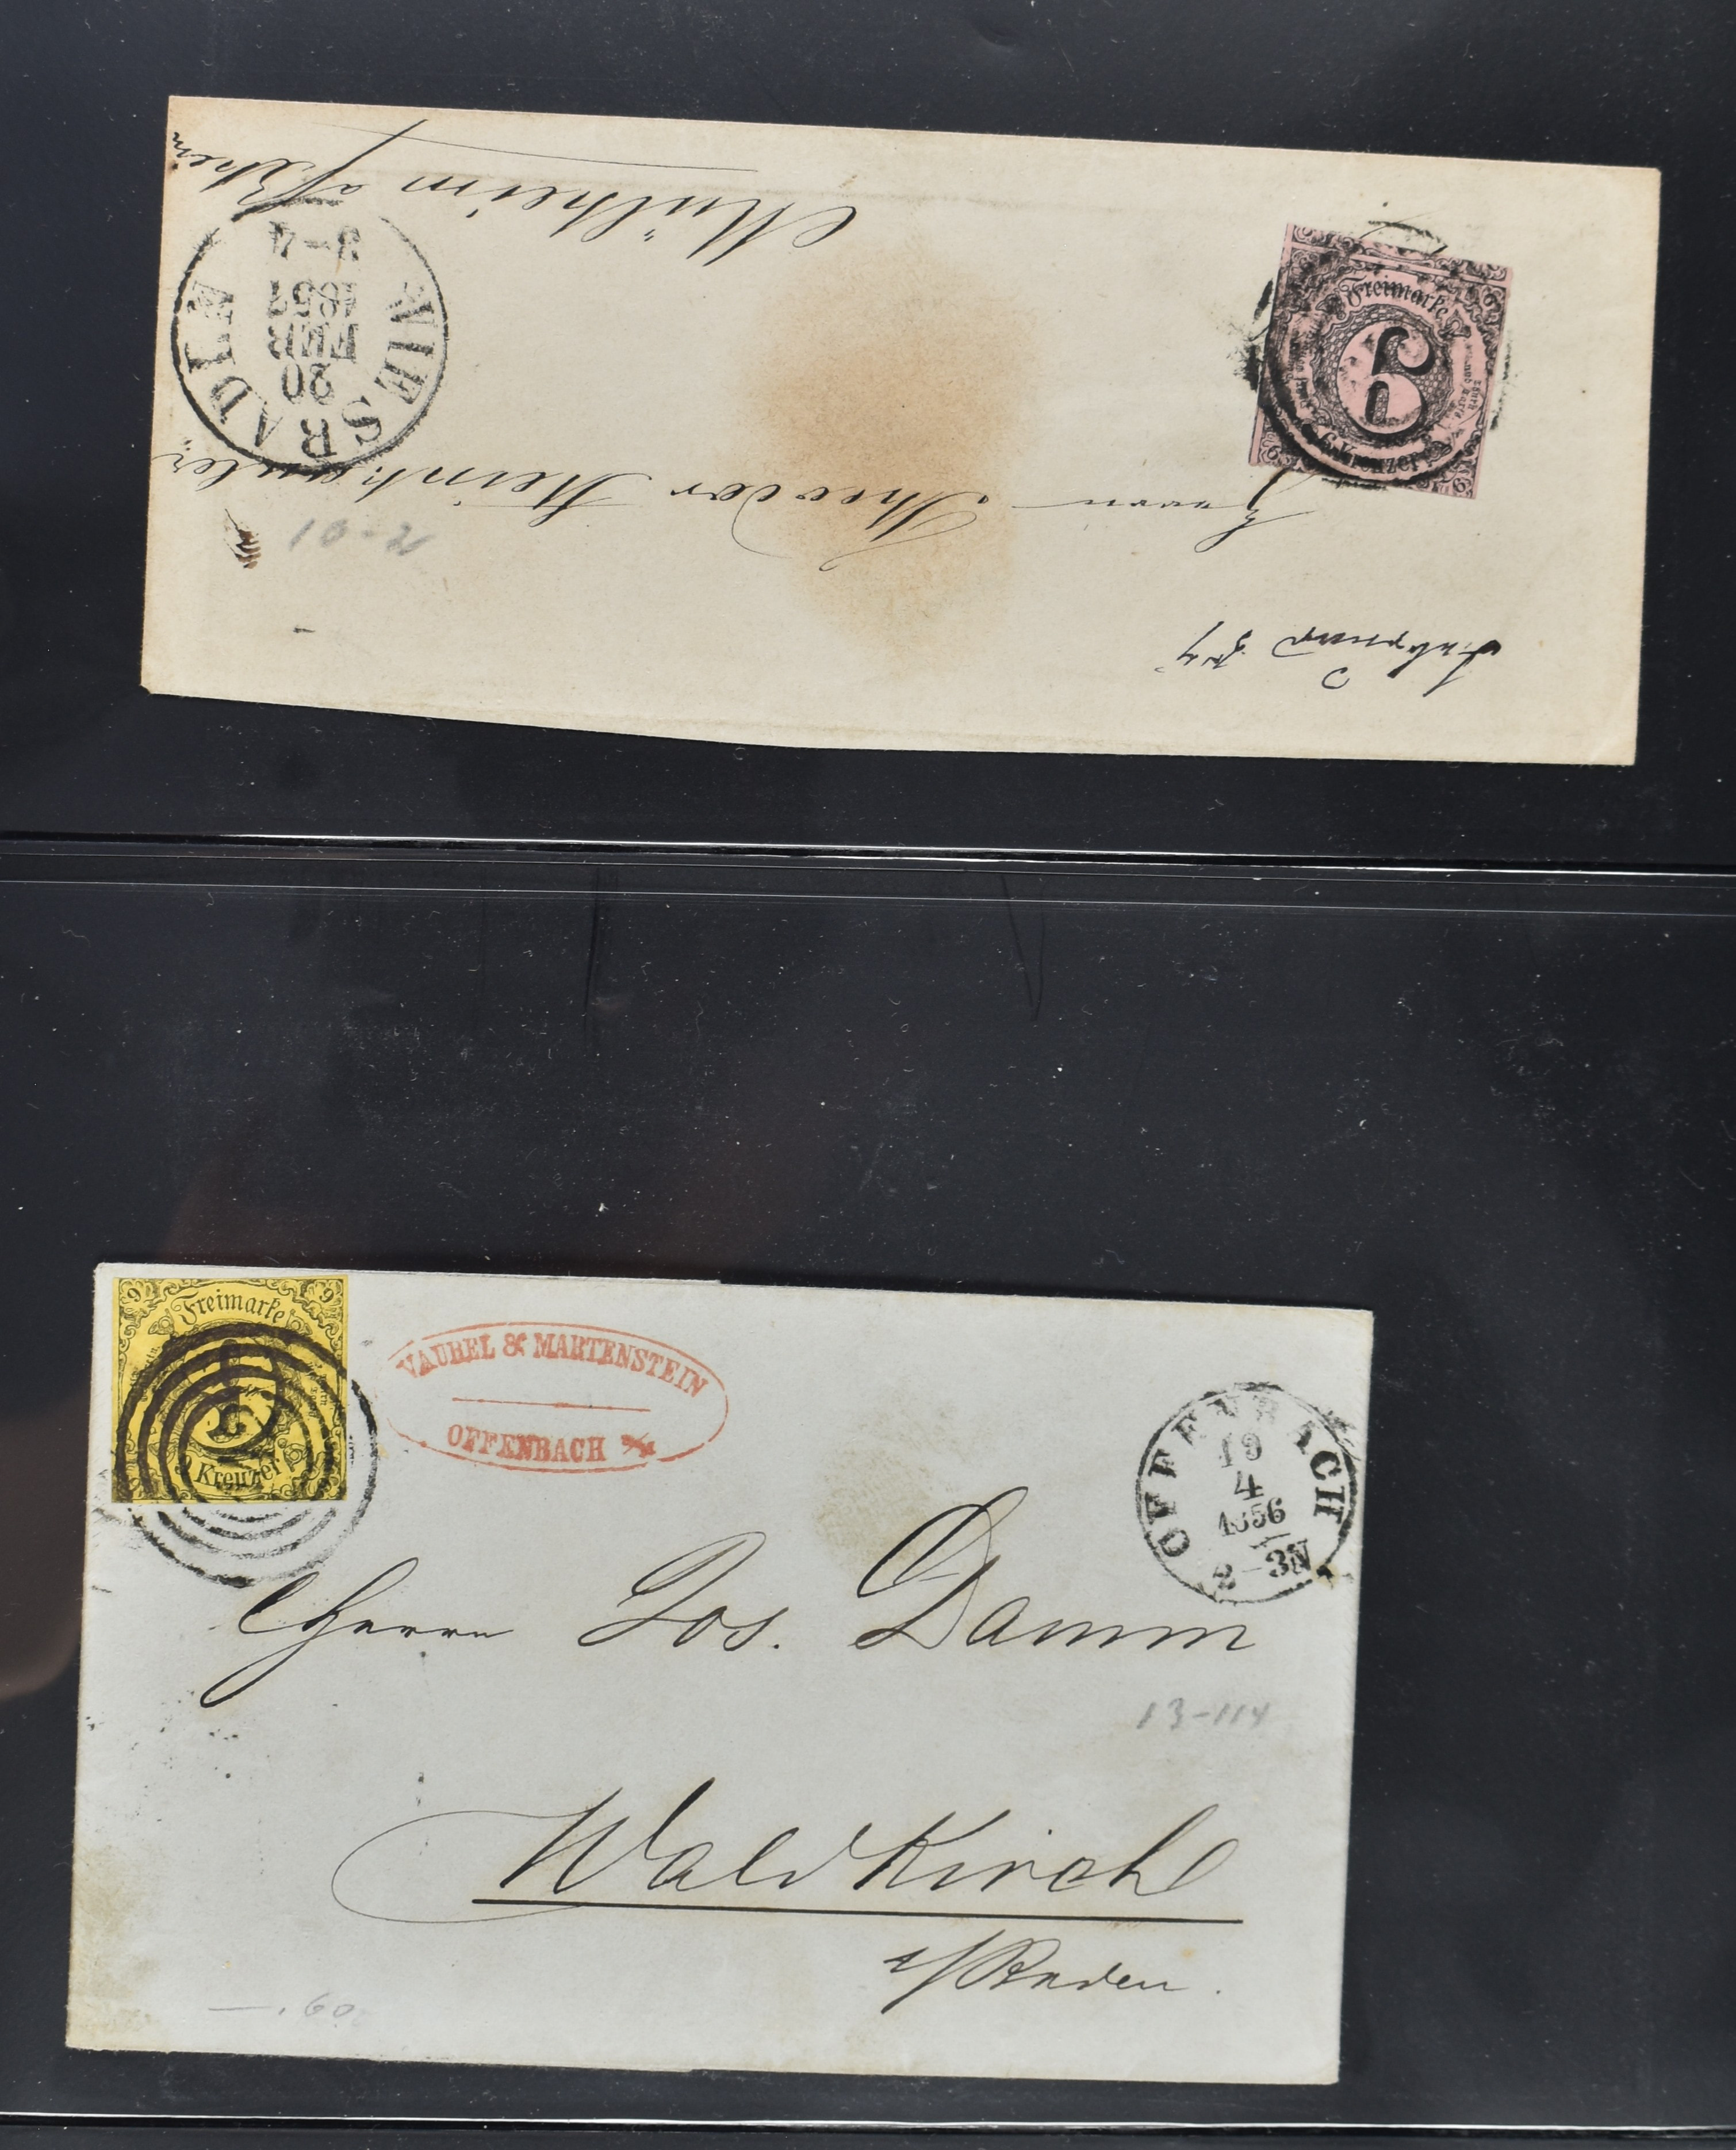 Mülheim a/Rhein
WIESBADEN
20
FEB
1857
3-4
Herrn Theodor Steinkauler
10-2
Freimarke
6
6. Kreuzer.
Freimarke
9
9
9 Kreuzer
VAUBEL & MARTENSTEIN
OFFENBACH a/M
OFFENBACH
19
4
1856
2-3N
Herrn Jos. Damm
13-114
Waldkirch
i/Baden.
—.60